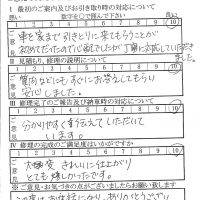 I 最初のご案内及びお引き取り時の対応について
数字を○で囲んで下さい
1 2 3 4 5 6 7 8 9 10
ご意見
車を家まで引きとりに来てもらうことが
初めてだったので心配でしたが丁寧に対応していただきました。
II 見積もり、修理の説明について
1 2 3 4 5 6 7 8 9 10
ご意見
質問などにもすぐにお答えしてもらい
安心しました。
III 修理完了のご報告及び納車時の対応について
1 2 3 4 5 6 7 8 9 10
ご意見
分かりやすく事を伝えして
います。
IV 修理の完成のご満足度はいかがですか
1 2 3 4 5 6 7 8 9 10
ご意見
大変 きれいに仕上がり
とても嬉しかったです。
※ご意見・お気づきの点がございましたらお願い致します
この度はお世話になり、ありがとうござい